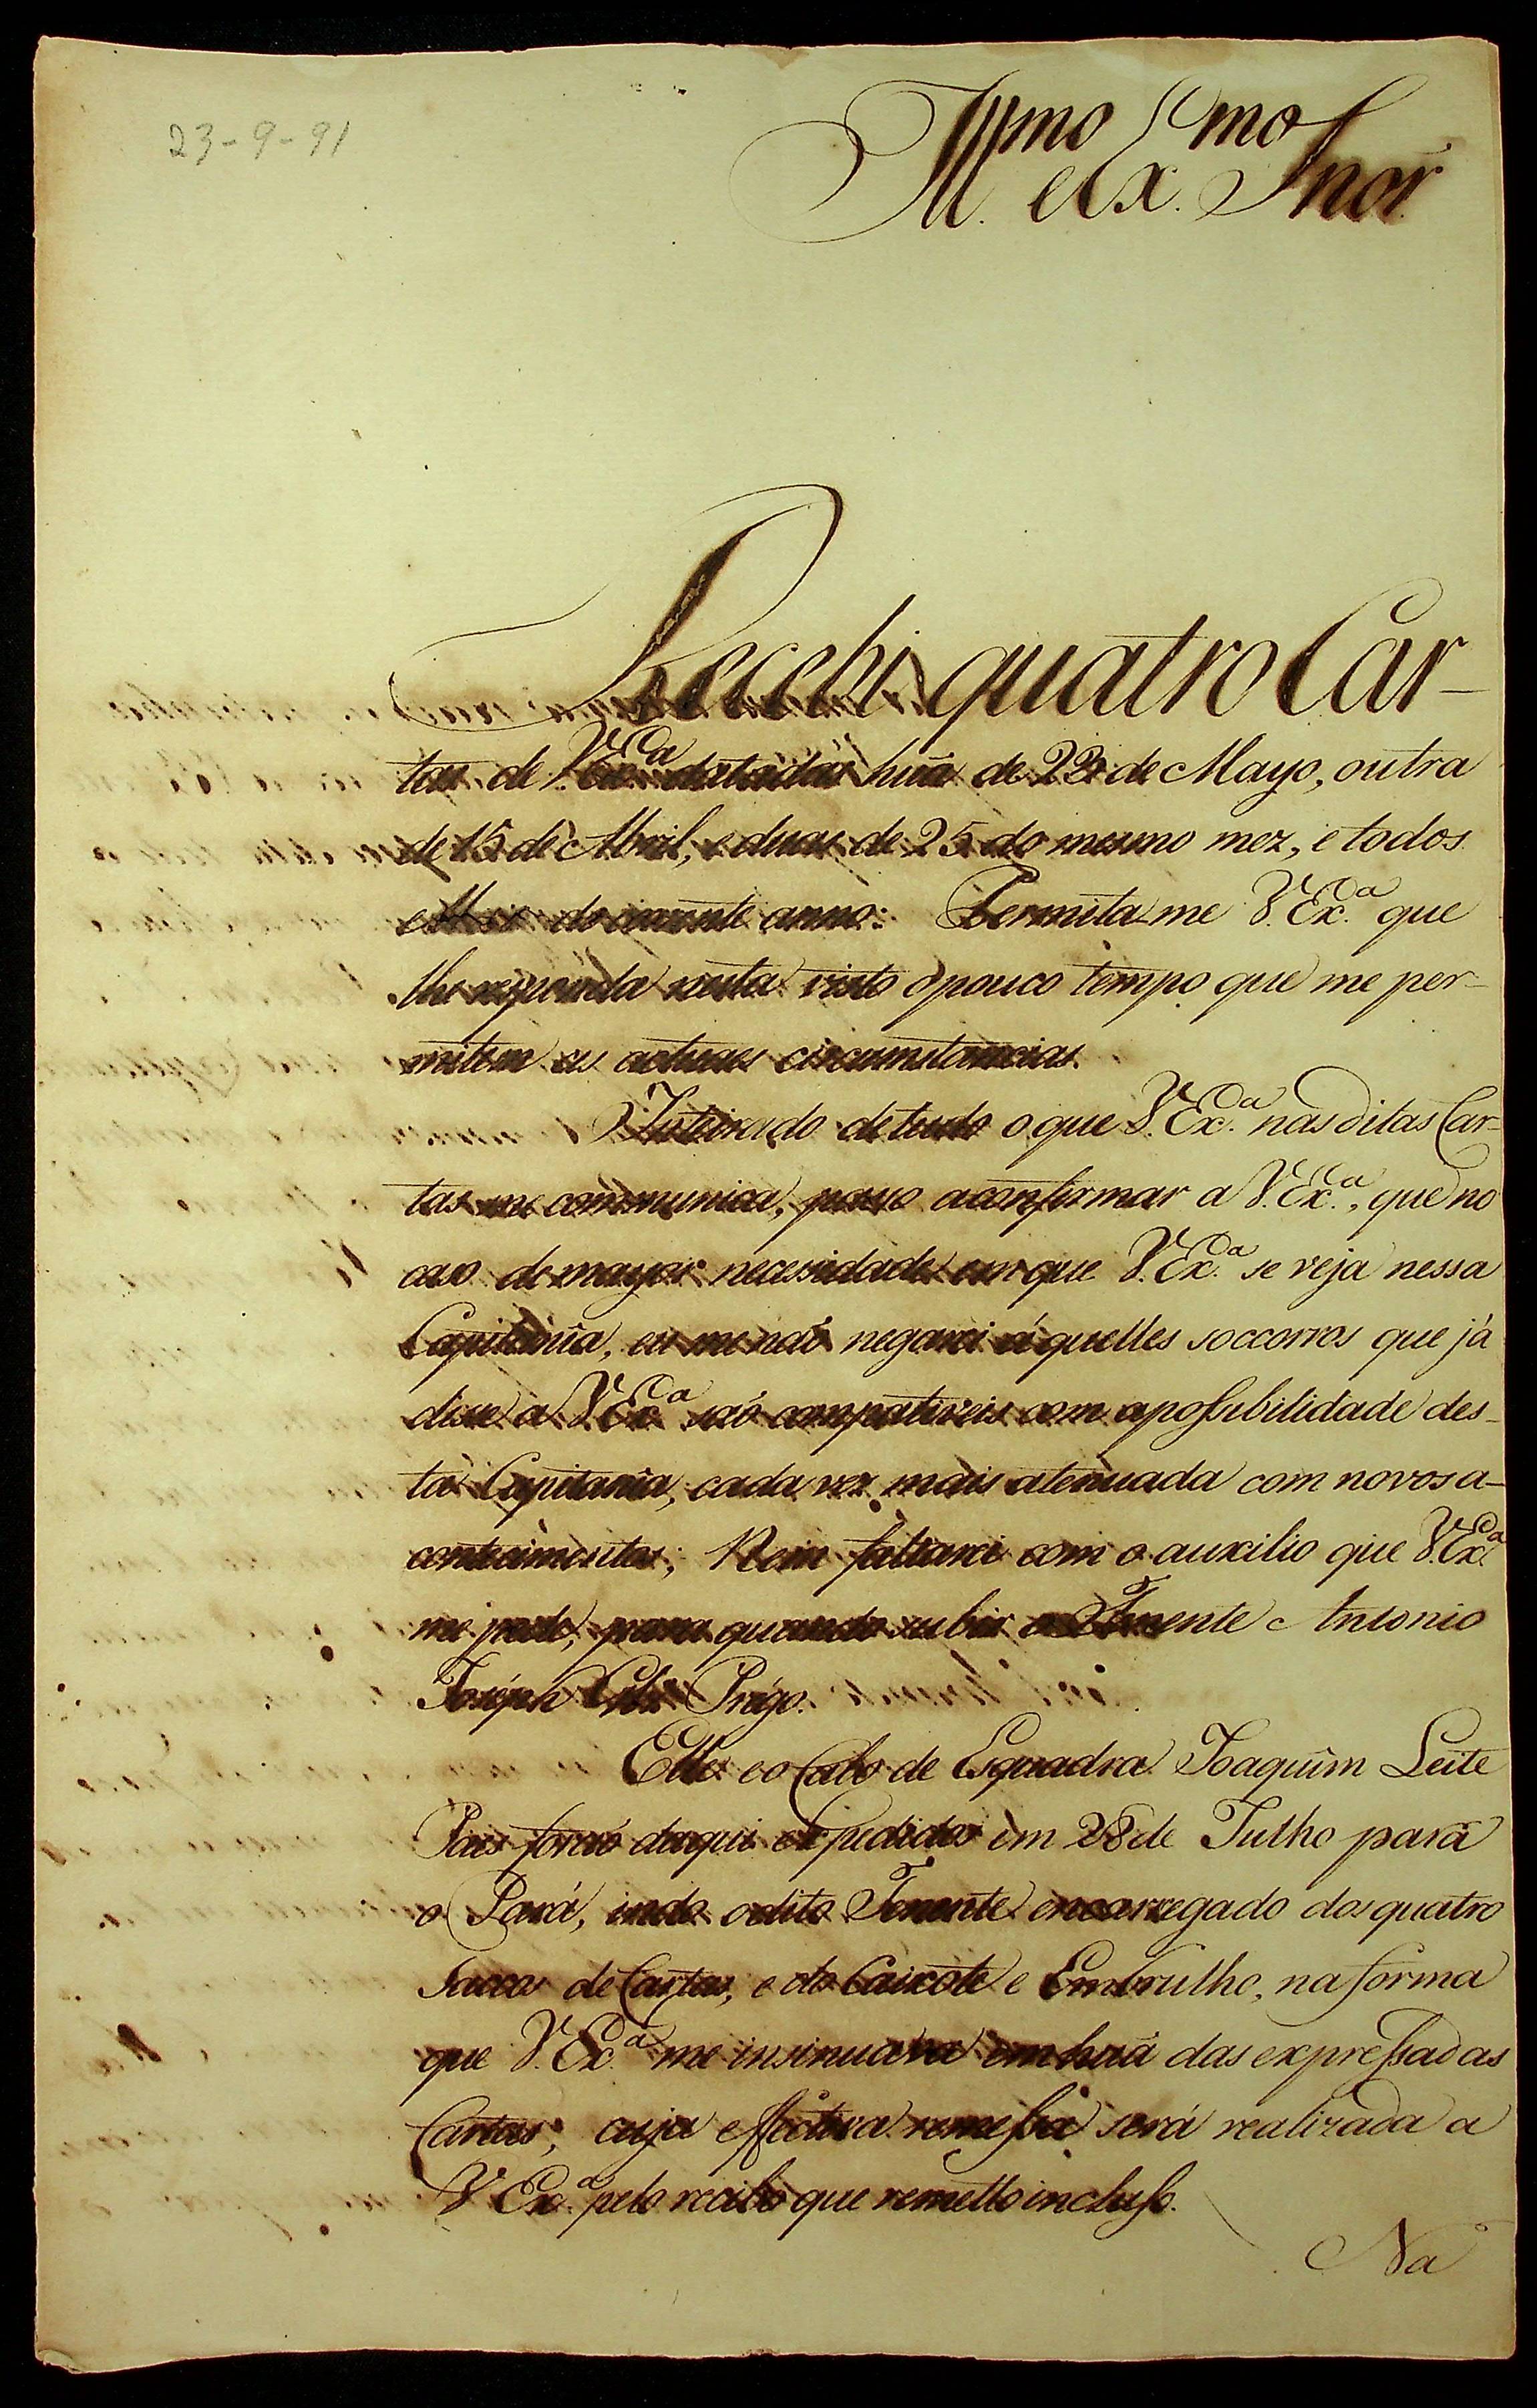 23-9-91
Ill.mo e Ex.mo Snor
Recebi quatro Car-
tas de V. Ex.a datadas huã de 22 de Mayo, outra
de 15 de Abril, e duas de 25 do mesmo mez, e todos
do corrente anno: Permita-me V. Ex.a que
lhe responda nesta visto o pouco tempo que me per-
mitem as actuaes circumstancias.
Inteirado de tudo o que V. Ex.a nas ditas Car-
tas me communica, passo a confirmar a V. Ex.a, que no
caso de mayor necessidade em que V. Ex.a se veja nessa
Capitania, eu me naõ negarei áquelles soccorros que já
disse a V. Ex.a saõ compativeis com a possibilidade des-
ta Capitania, cada vez mais atenuada com novos a-
contecimentos; Nem faltarei com o auxilio que V. Ex.a
me pede, para quando subir o Tenente Antonio
Joseph Prégo.
Elle e o Cabo de Esquadra Joaquim Leite
Paes foraõ daqui expedidos em 28 de Julho para
o Pará, indo o dito Tenente encarregado dos quatro
saccos de Cartas, e do Caixote e Embrulho, na forma
que V. Ex.a me insinuava em huã das expressadas
Cartas; cuja effectiva remessa será realizada a
V. Ex.a pelo recibo que remetto incluso.
Na